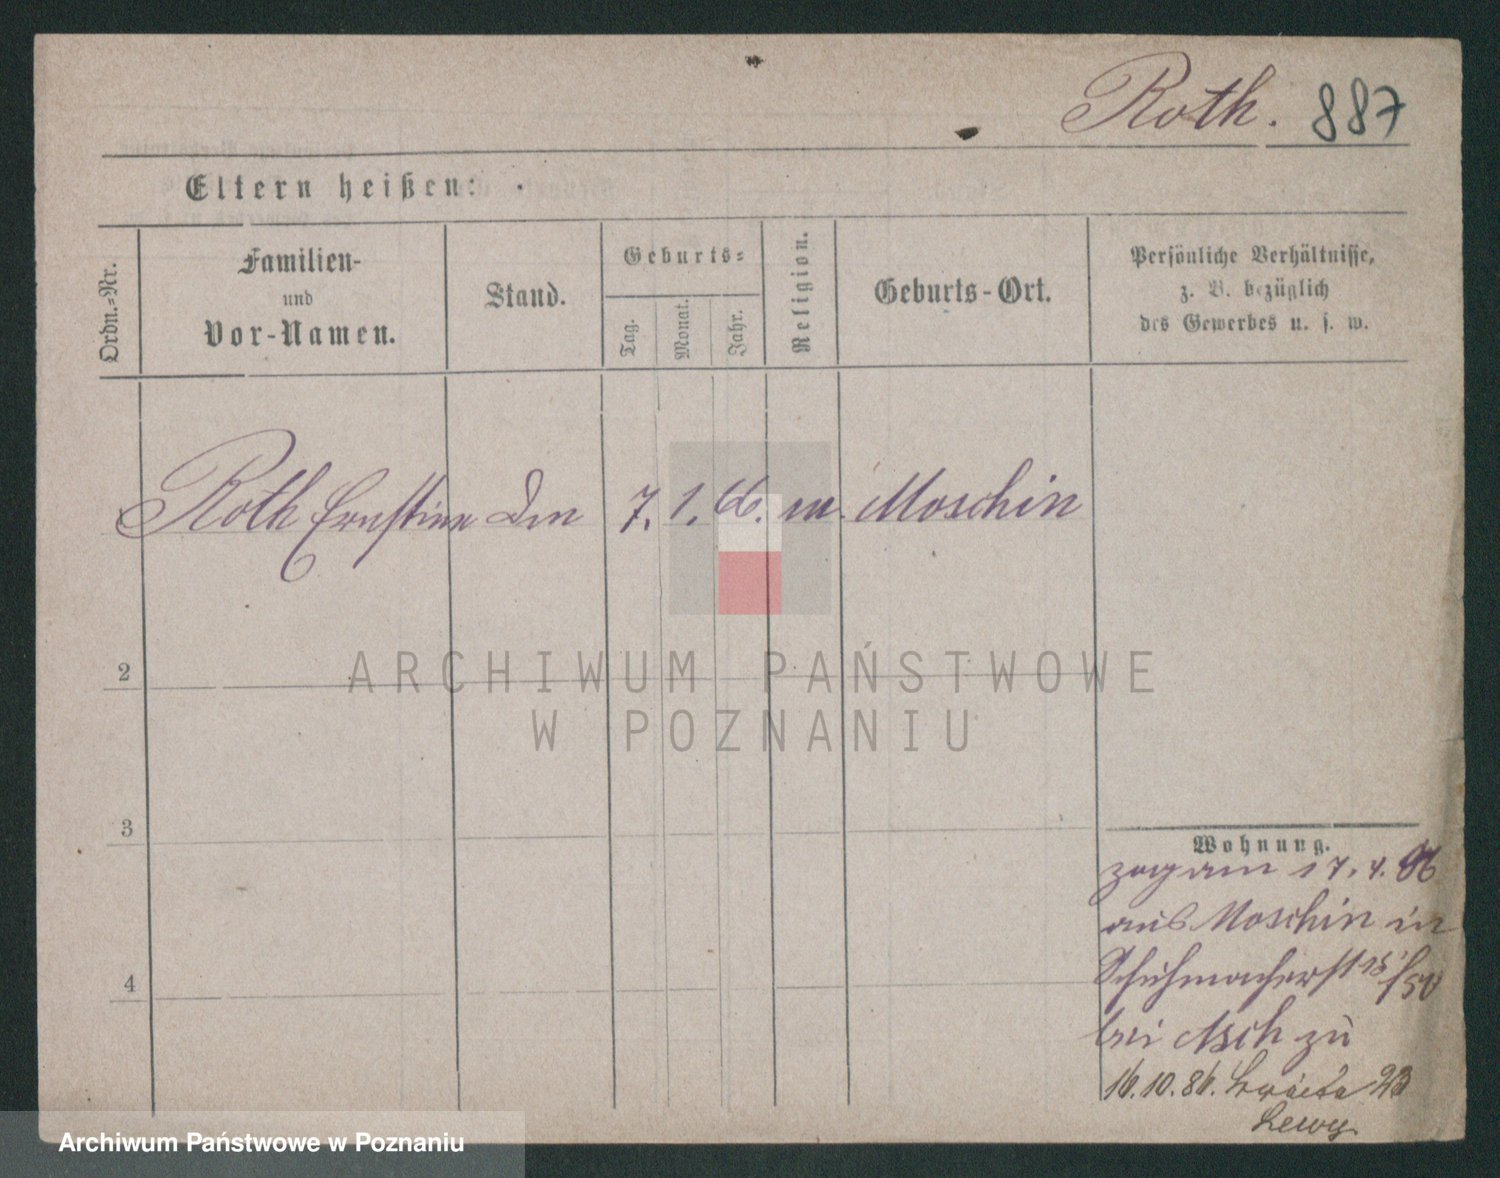 Roth. 887
Eltern heißen:
Ordn.=Nr.
Familien-
und
Vor-Namen.
Stand.
Geburts=
Tag.
Monat.
Jahr.
Religion.
Geburts-Ort.
Persönliche Verhältnisse,
z. B. bezüglich
des Gewerbes u. s. w.
Roth Ernstine 7. 1. 66. m. Moschin
2
3
4
Wohnung.
zog am 17. 4. 86
aus Moschin in
Schuhmacherst
bei Asch zu
16.10.86. 23
Lewy
ARCHIWUM PAŃSTWOWE
W POZNANIU
Archiwum Państwowe w Poznaniu